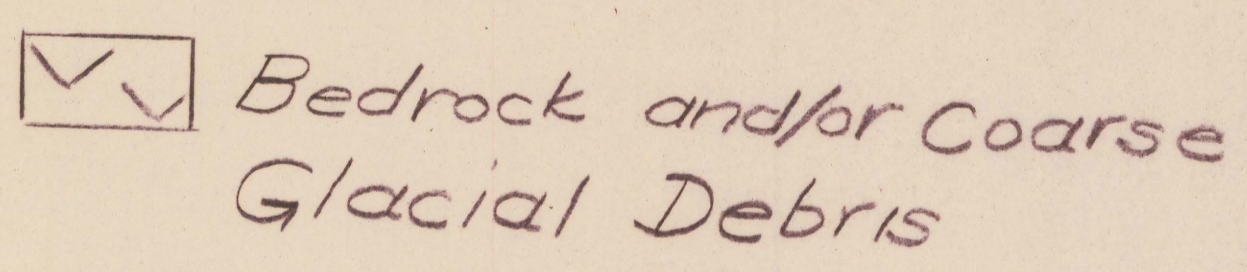 Bedrock and/or Coarse
Glacial Debris